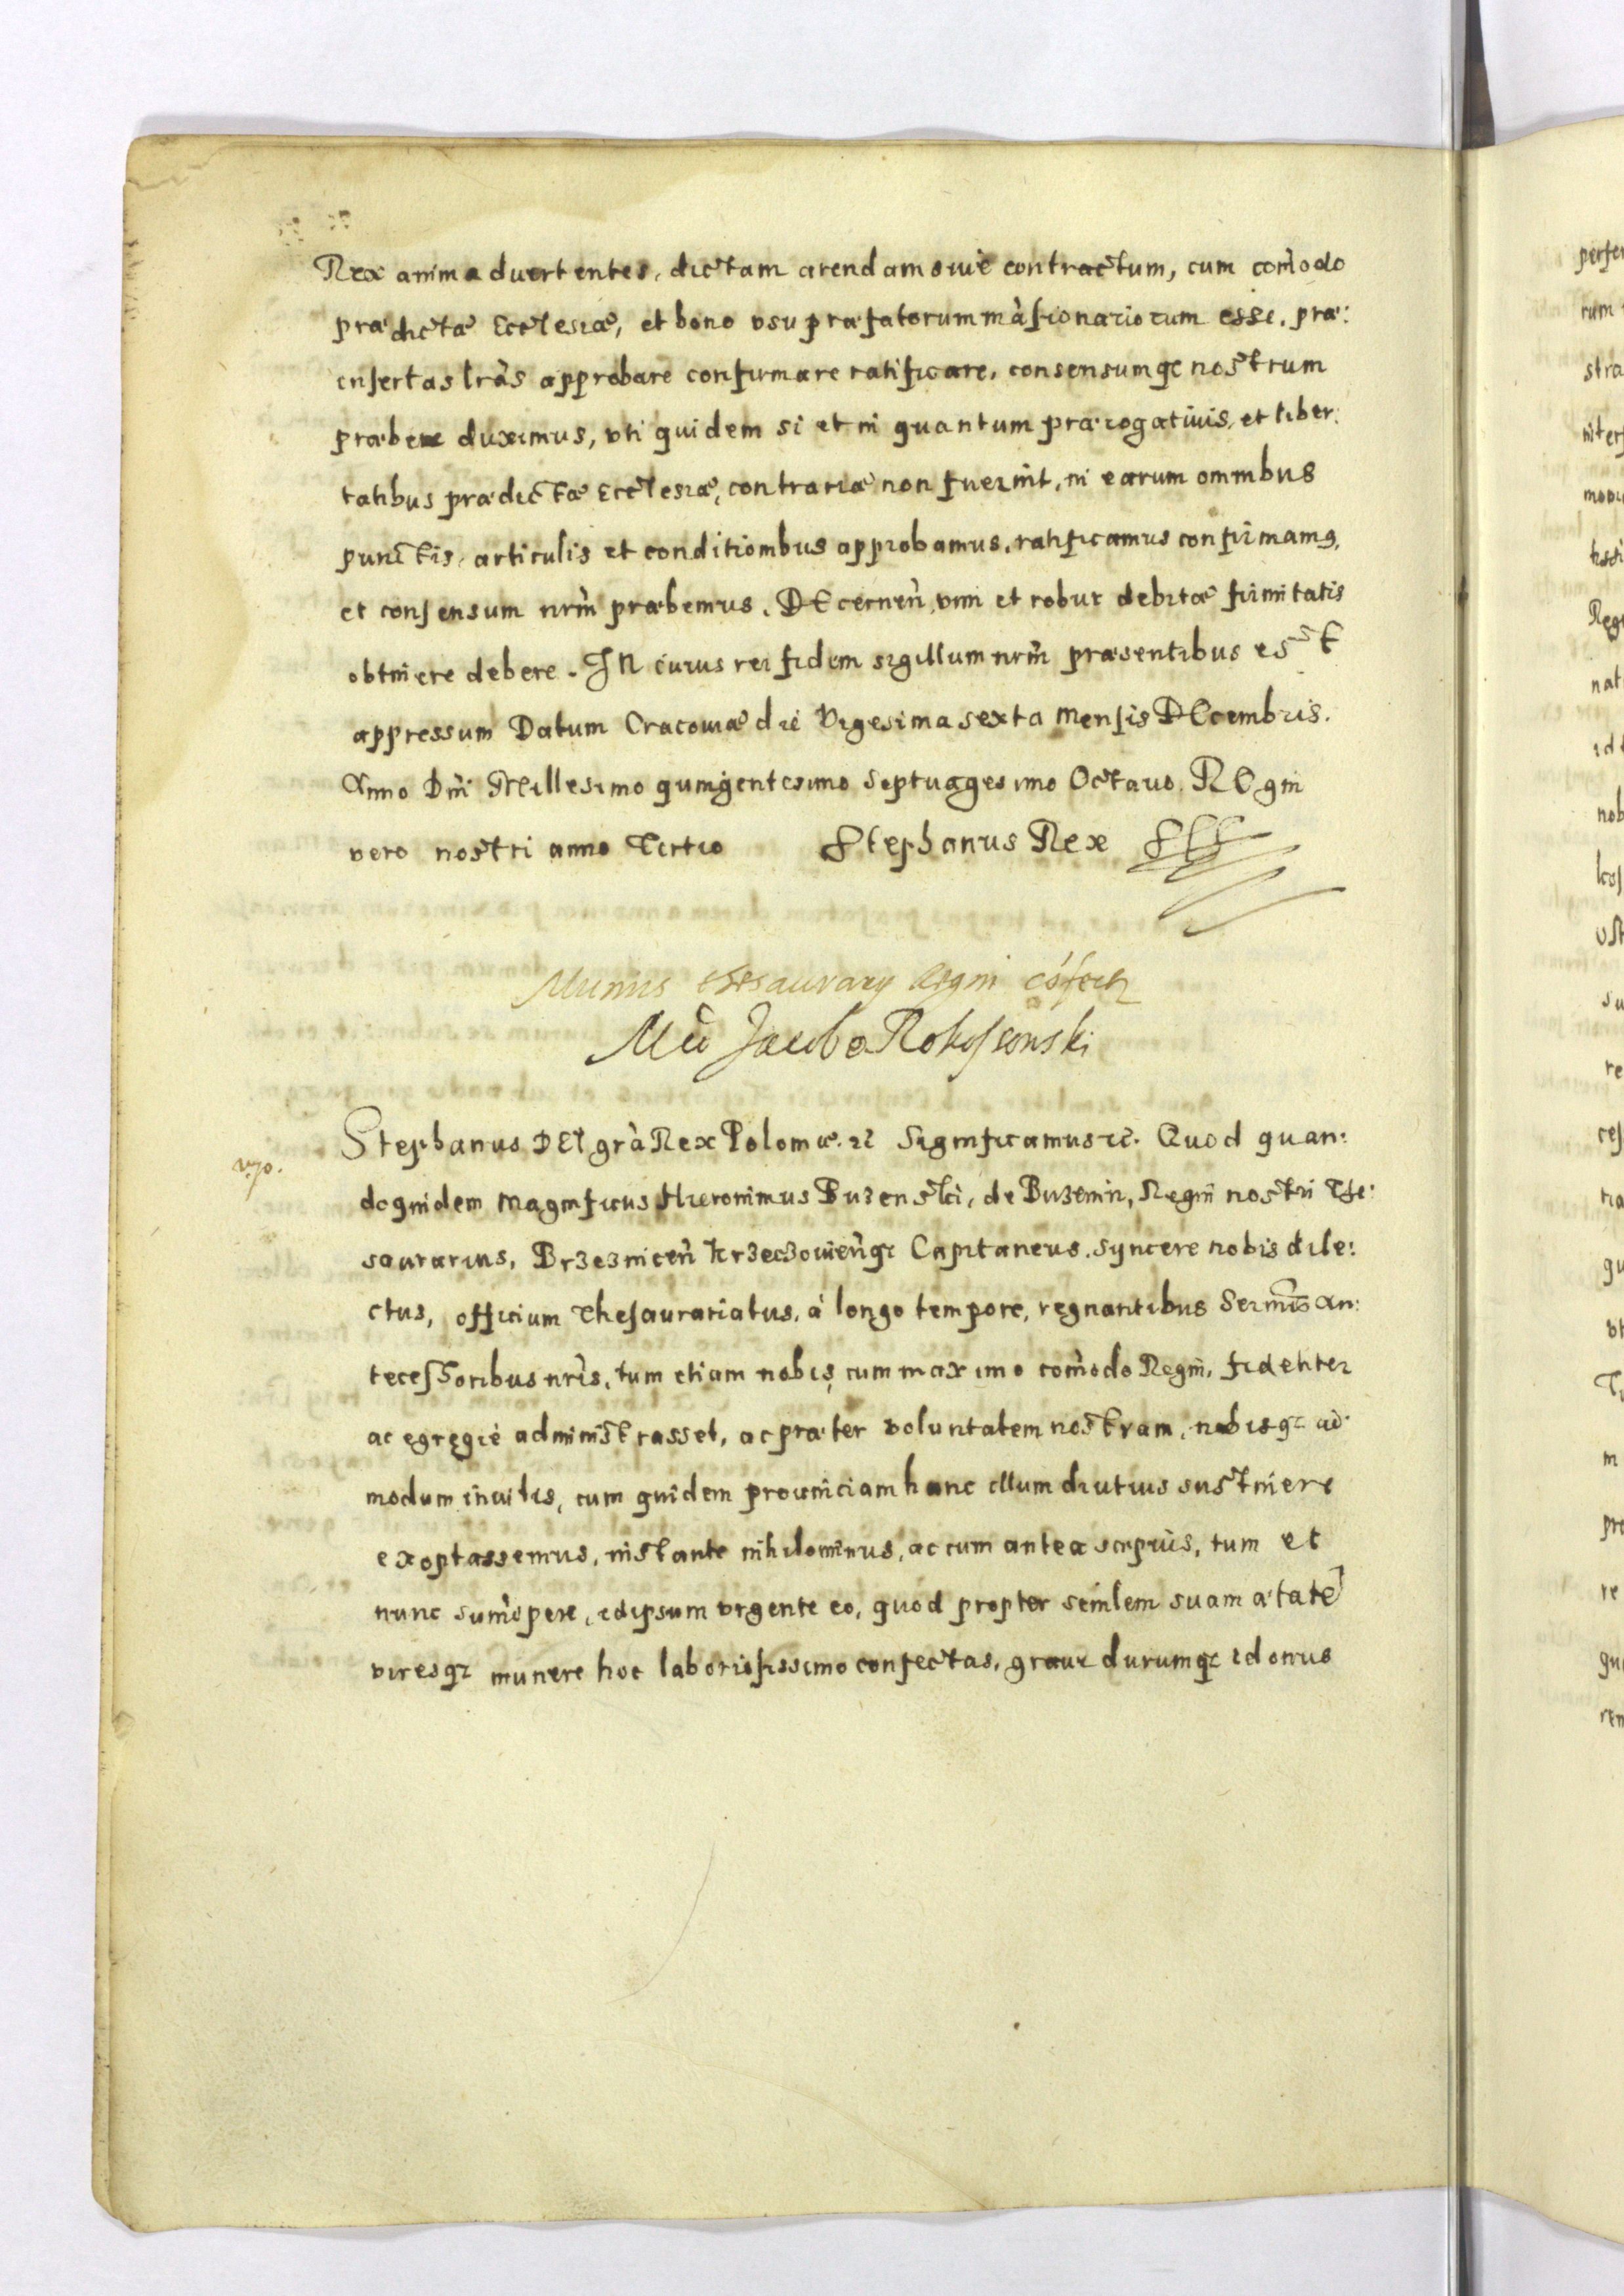 Rex animaduertentes, dictam arendam siue contractum, cum com̃odo
prædictæ Ecclesiæ, et bono vsu præfatorum mãsionariorum esse, præ:
insertas lrãs approbare confirmare ratificare, consensumqꝫ nostrum
præbere duximus, vti quidem si et in quantum prærogatiuis, et liber:
tatibus prædictæ Ecclesiæ, contrariæ non fuerint, in earum omnibus
punctis, articulis et conditionibus approbamus, ratificamus confirmamꝰ,
et consensum nrm̃ præbemus. DEcernen̄, vim et robur debitæ firmitatis
obtinere debere. IN cuius rei fidem sigillum nrm̃ præsentibus est
appressum Datum Cracouiæ die Vigesima sexta Mensis DEcembris.
Anno Dni̅ Millesimo quingentesimo Septuagesimo Octauo. REgni
vero nostri anno Tertio Stephanus Rex
Munus thesaurarÿ Regni
Jacobo Rokossowski
Stephanus DEI grã Rex Poloniæ. ꝛc̄ Significamus ꝛc̄. Quod quan:
doquidem Magnificus Hieronimus Buzenski, de Buzenin, Regni nostri The:
saurarius, Brzeznicen̄ Krzeczouien̄qꝫ Capitaneus. Syncere nobis dile:
ctus, officium Thesaurariatus, à longo tempore, regnantibus Sermi̅s an:
tecessoribus nrĩs, tum etiam nobis, cum maximo com̃odo Regni, fideliter
ac egregie administrasset, ac præter voluntatem nostram, nobisqꝫ ad:
modum inuitis, cum quidem prouinciam hanc illum diutius sustinere
exoptassemus, instante nihilominus, ac cum antea sæpius, tum et
nunc sum̃opere, idipsum vrgente eo, quod propter senilem suam ætatē
viresqꝫ munere hoc laboriosissimo confectas, graue durumqꝫ id onus